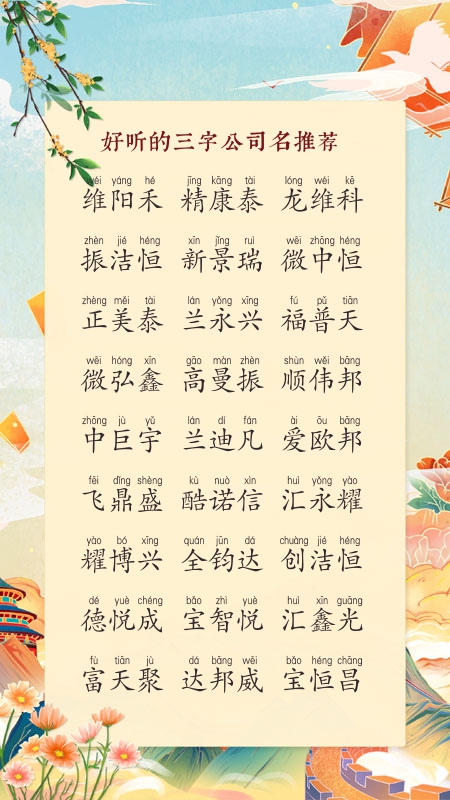 好听的三字公司名推荐
wéi yáng hé jīng kāng tài lóng wéi kē
维阳禾 精康泰 龙维科
zhèn jié héng xīn jǐng ruì wēi zhōng héng
振洁恒 新景瑞 微中恒
zhèng měi tài lán yǒng xīng fú pǔ tiān
正美泰 兰永兴 福普天
wēi hóng xīn gāo màn zhèn shùn wěi bāng
微弘鑫 高曼振 顺伟邦
zhōng jù yǔ lán dí fán ài ōu bāng
中巨宇 兰迪凡 爱欧邦
fēi dǐng shèng kù nuò xìn huì yǒng yào
飞鼎盛 酷诺信 汇永耀
yào bó xīng quán jūn dá chuàng jié héng
耀博兴 全钧达 创洁恒
dé yuè chéng bǎo zhì yuè huì xīn guāng
德悦成 宝智悦 汇鑫光
fù tiān jù dá bāng wēi bǎo héng chāng
富天聚 达邦威 宝恒昌